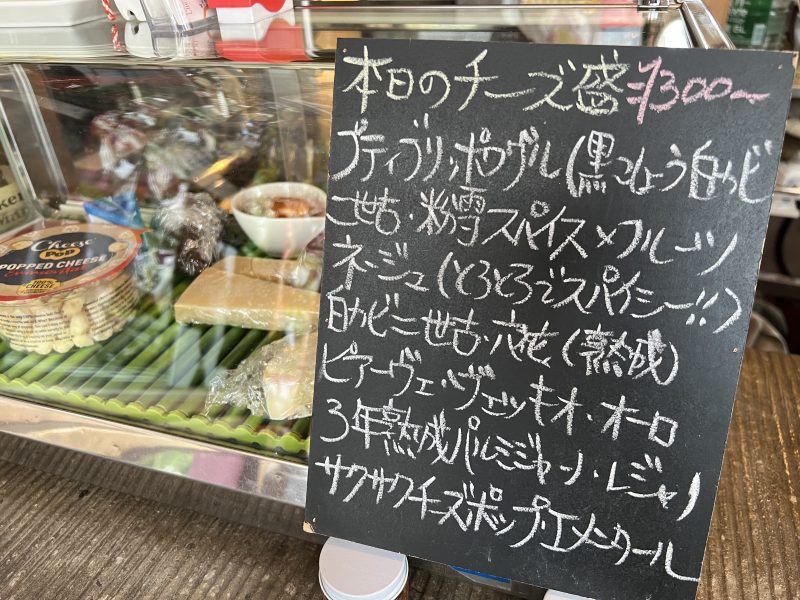 本日のチーズ盛 ¥1300〜
プティブリ・ポワヴル(黒こしょう白カビ
二世古・粉雪スパイス×フルーツ
ネージュ(とろとろでスパイシー!!)
白カビ二世古・六花(熟成)
ピアーヴェ・ヴェッキオ・オーロ
3年熟成パルミジャーノ・レジャノ
サクサクチーズポップ・エメンタール
Cheese
POP
POPPED CHEESE